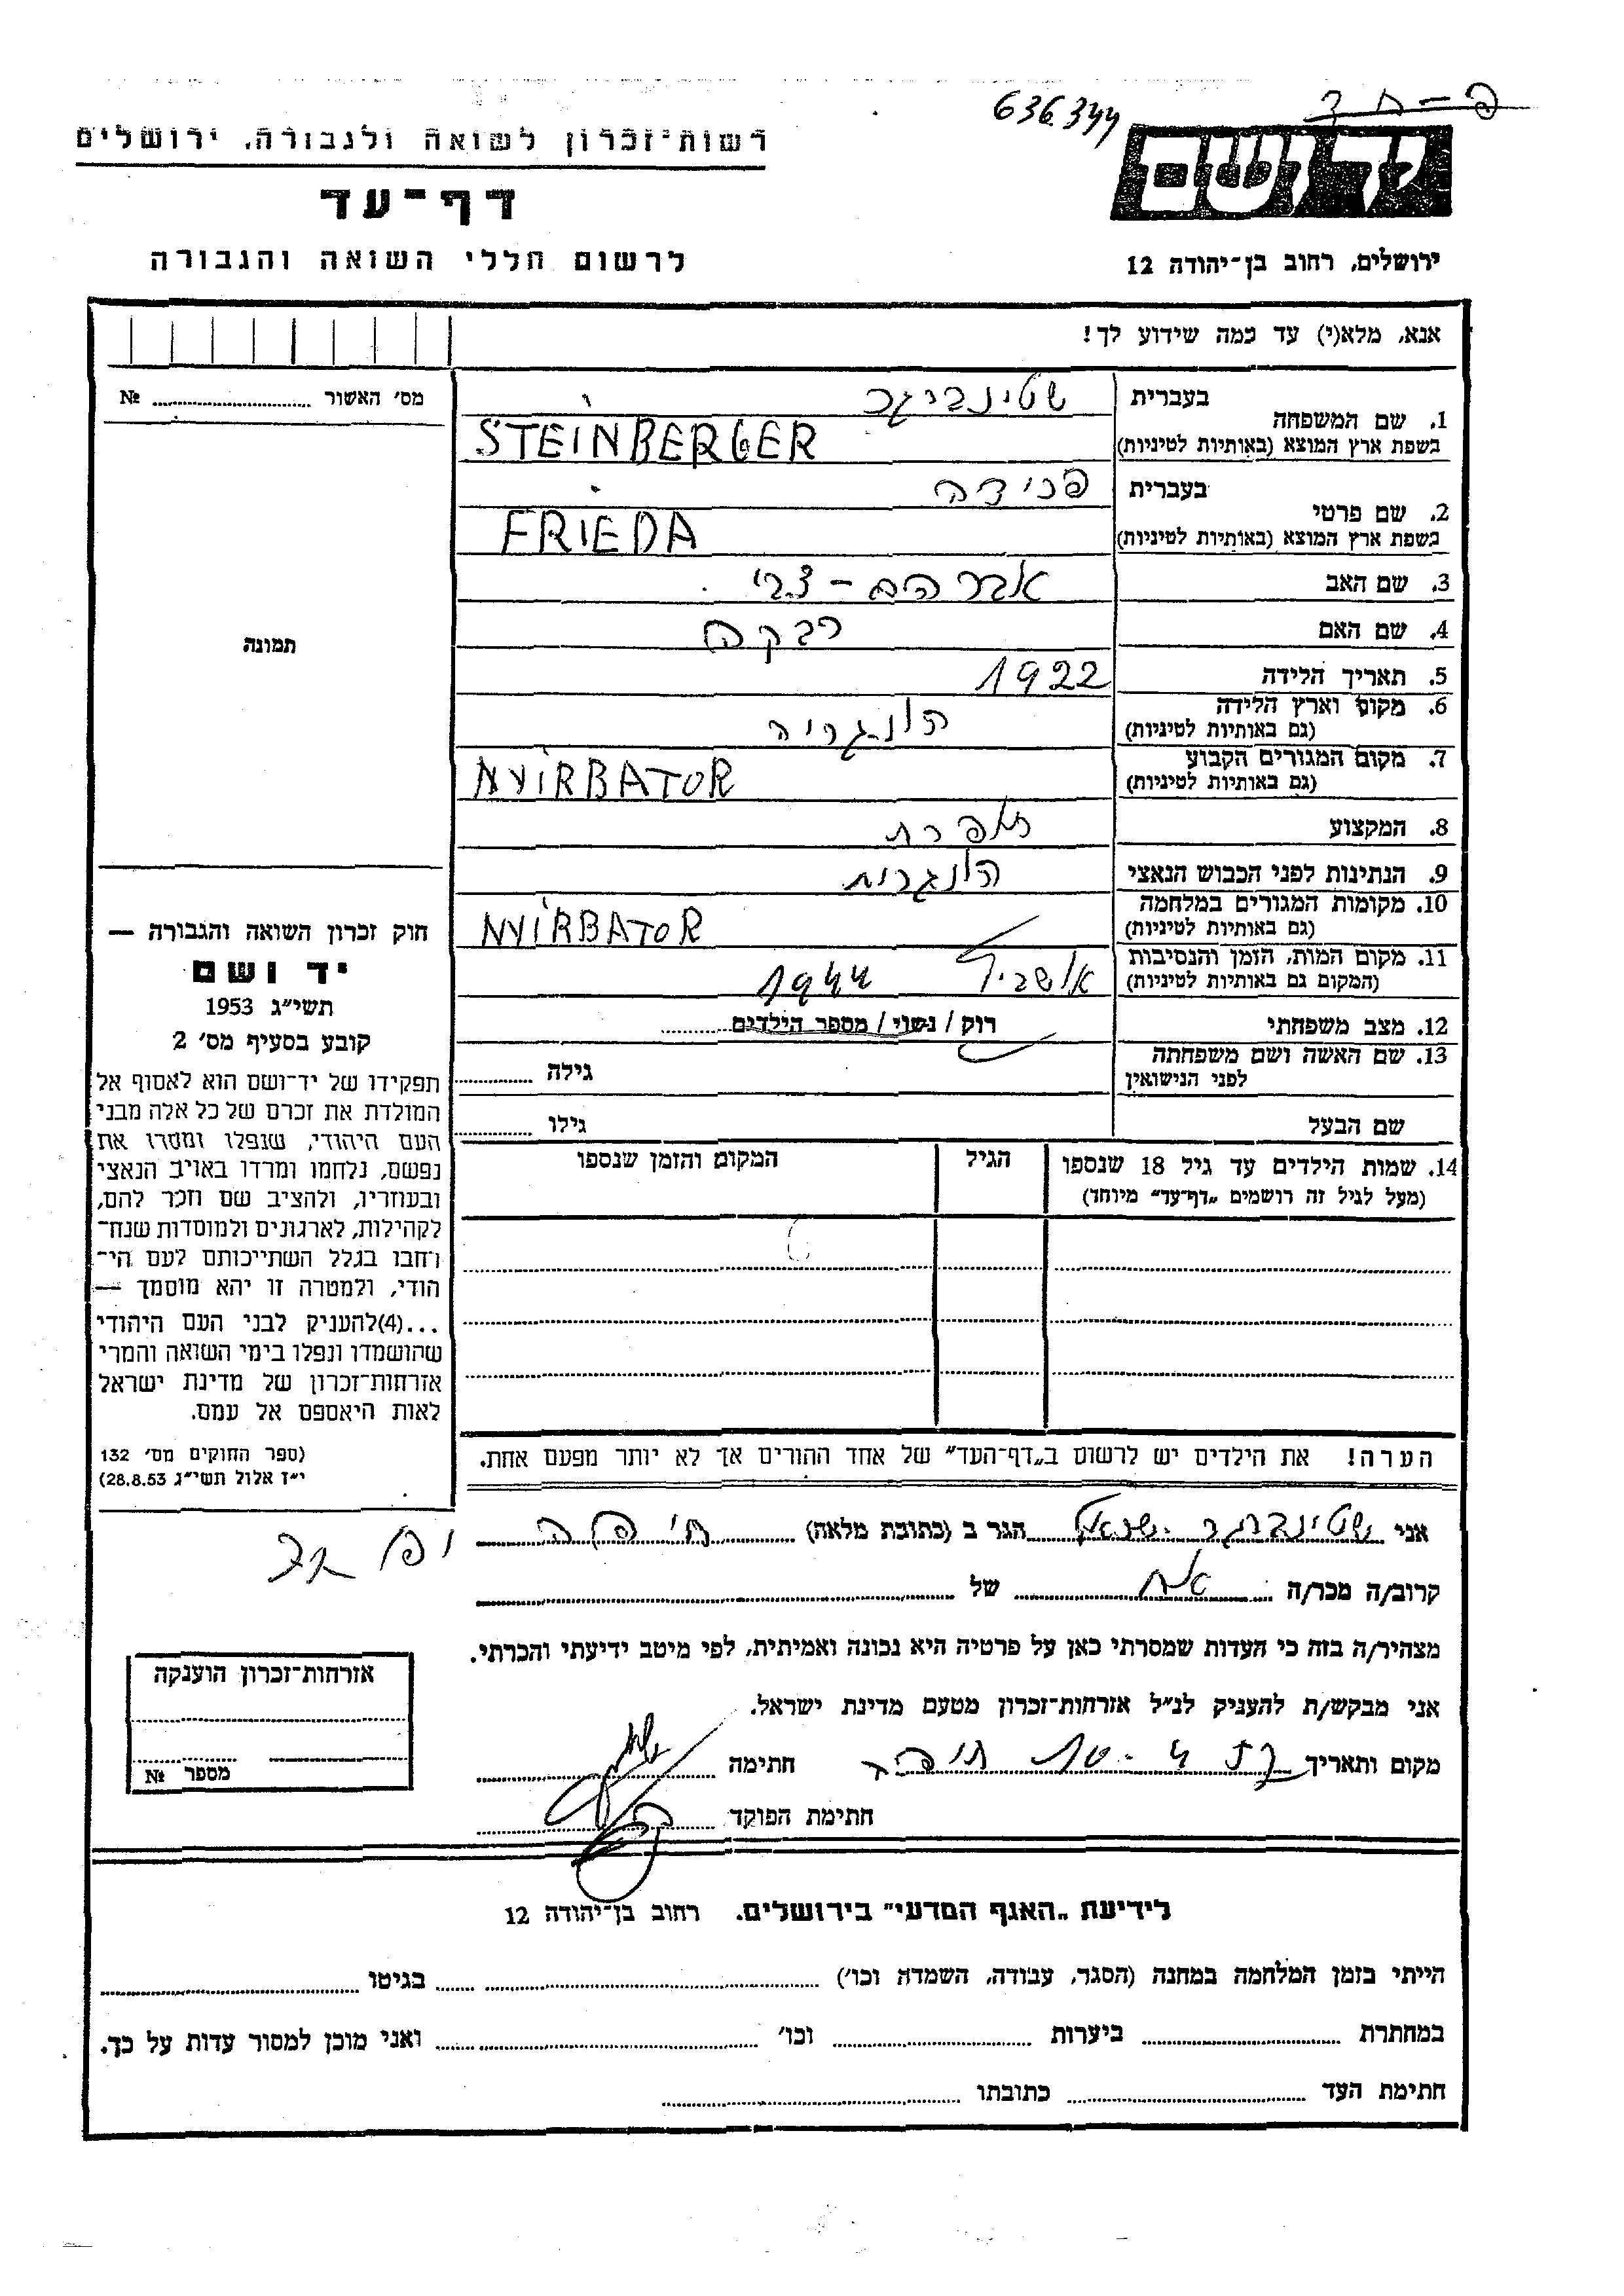 636344
רשות־זכרון לשואה ולגבורה, ירושלים
דף־עד
לרשום חללי השואה והגבורה
יד ושם
ירושלים, רחוב בן־יהודה 12
אנא, מלא(י) עד כמה שידוע לך!
מס׳ האשור № 
תמונה
1. שם המשפחה
בעברית שטינברגר
בשפת ארץ המוצא (באותיות לטיניות) STEINBERGER
2. שם פרטי
בעברית פרידה
בשפת ארץ המוצא (באותיות לטיניות) FRIEDA
3. שם האב אברהם - צבי
4. שם האם רבקה
5. תאריך הלידה 1922
6. מקום וארץ הלידה הונגריה
(גם באותיות לטיניות)
7. מקום המגורים הקבוע NYIRBATOR
(גם באותיות לטיניות)
8. המקצוע תופרת
9. הנתינות לפני הכבוש הנאצי הונגרית
10. מקומות המגורים במלחמה NYIRBATOR
(גם באותיות לטיניות)
11. מקום המות, הזמן והנסיבות אושביץ 1944
(המקום גם באותיות לטיניות)
12. מצב משפחתי רוק / נשוי / מספר הילדים
13. שם האשה ושם משפחתה גילה
לפני הנישואין
שם הבעל גילו
14. שמות הילדים עד גיל 18 שנספו הגיל המקום והזמן שנספו
(מעל לגיל זה רושמים „דף־עד״ מיוחד)
הערה! את הילדים יש לרשום ב„דף־העד״ של אחד ההורים אך לא יותר מפעם אחת.
חוק זכרון השואה והגבורה —
יד ושם
תשי״ג 1953
קובע בסעיף מס׳ 2
תפקידו של יד־ושם הוא לאסוף אל
המולדת את זכרם של כל אלה מבני
העם היהודי, שנפלו ומסרו את
נפשם, נלחמו ומרדו באויב הנאצי
ובעוזריו, ולהציב שם וזכר להם,
לקהילות, לארגונים ולמוסדות שנח־
רחבו בגלל השתייכותם לעם הי־
הודי, ולמטרה זו יהא מוסמך —
...(4)להעניק לבני העם היהודי
שהושמדו ונפלו בימי השואה והמרי
אזרחות־זכרון של מדינת ישראל
לאות היאספם אל עמם.
(ספר החוקים מס׳ 132
י״ז אלול תשי״ג 28.8.53)
אני שטינברגר ישראל הגר ב (כתובת מלאה) חיפה
קרוב/ה מכר/ה אח של
מצהיר/ה בזה כי העדות שמסרתי כאן על פרטיה היא נכונה ואמיתית, לפי מיטב ידיעתי והכרתי.
אני מבקש/ת להעניק לנ״ל אזרחות־זכרון מטעם מדינת ישראל.
מקום ותאריך חתימה
חתימת הפוקד
אזרחות־זכרון הוענקה
מספר №
לידיעת „האגף המדעי״ בירושלים. רחוב בן־יהודה 12
הייתי בזמן המלחמה במחנה (הסגר, עבודה, השמדה וכו׳) בגיטו
במחתרת ביערות וכו׳ ואני מוכן למסור עדות על כך.
חתימת העד כתובתו